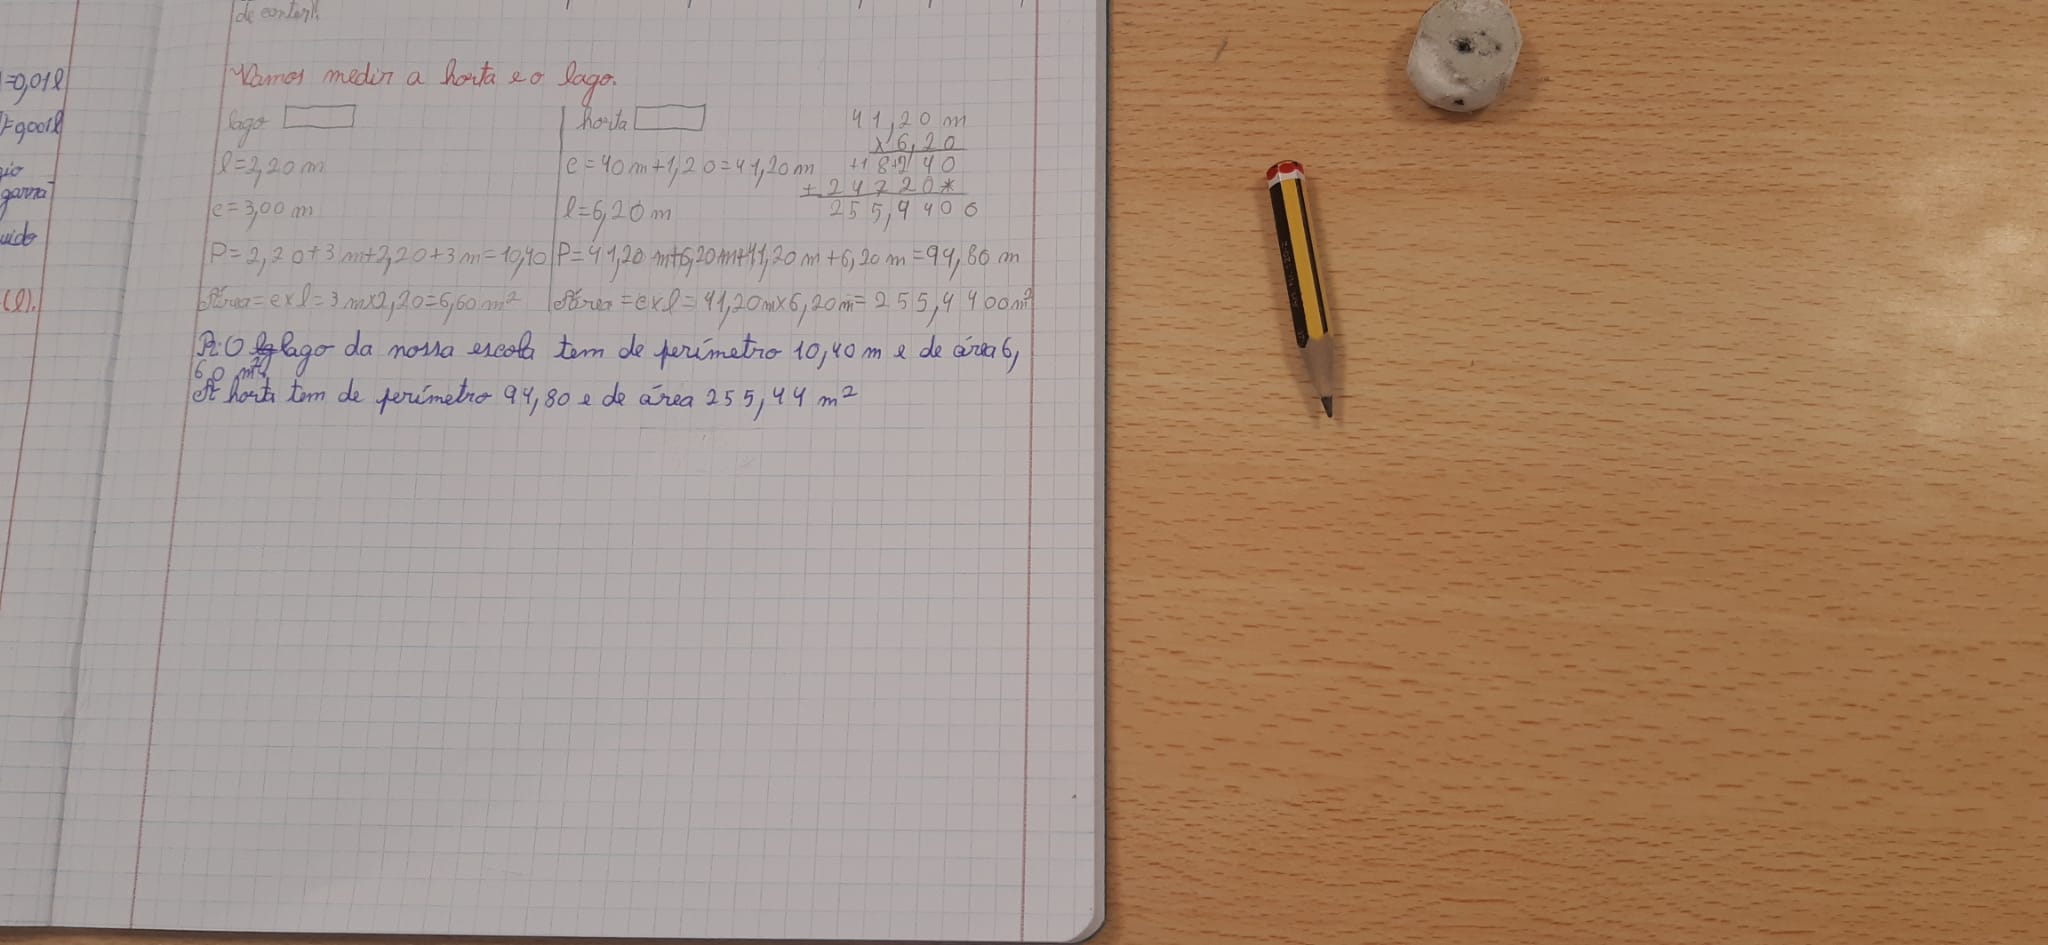 de conter).
=0,01l
=0,001l
Vamos medir a horta e o lago.
lago
l=2,20 m
c=3,00 m
P=2,20+3m+2,20+3m=10,40
Área=cxl=3mx2,20=6,60m²
horta
c=40m+1,20=41,20m
l=6,20m
P=41,20m+6,20m+41,20m+6,20m=94,80 m
Área=cxl=41,20mx6,20m=255,4400m²
41,20 m
x6,20
+18+2140
+24720*
255,4400
(l).
R:O lago da nossa escola tem de perímetro 10,40 m e de área 6,
60 m²
A horta tem de perímetro 94,80 e de área 255,44 m²